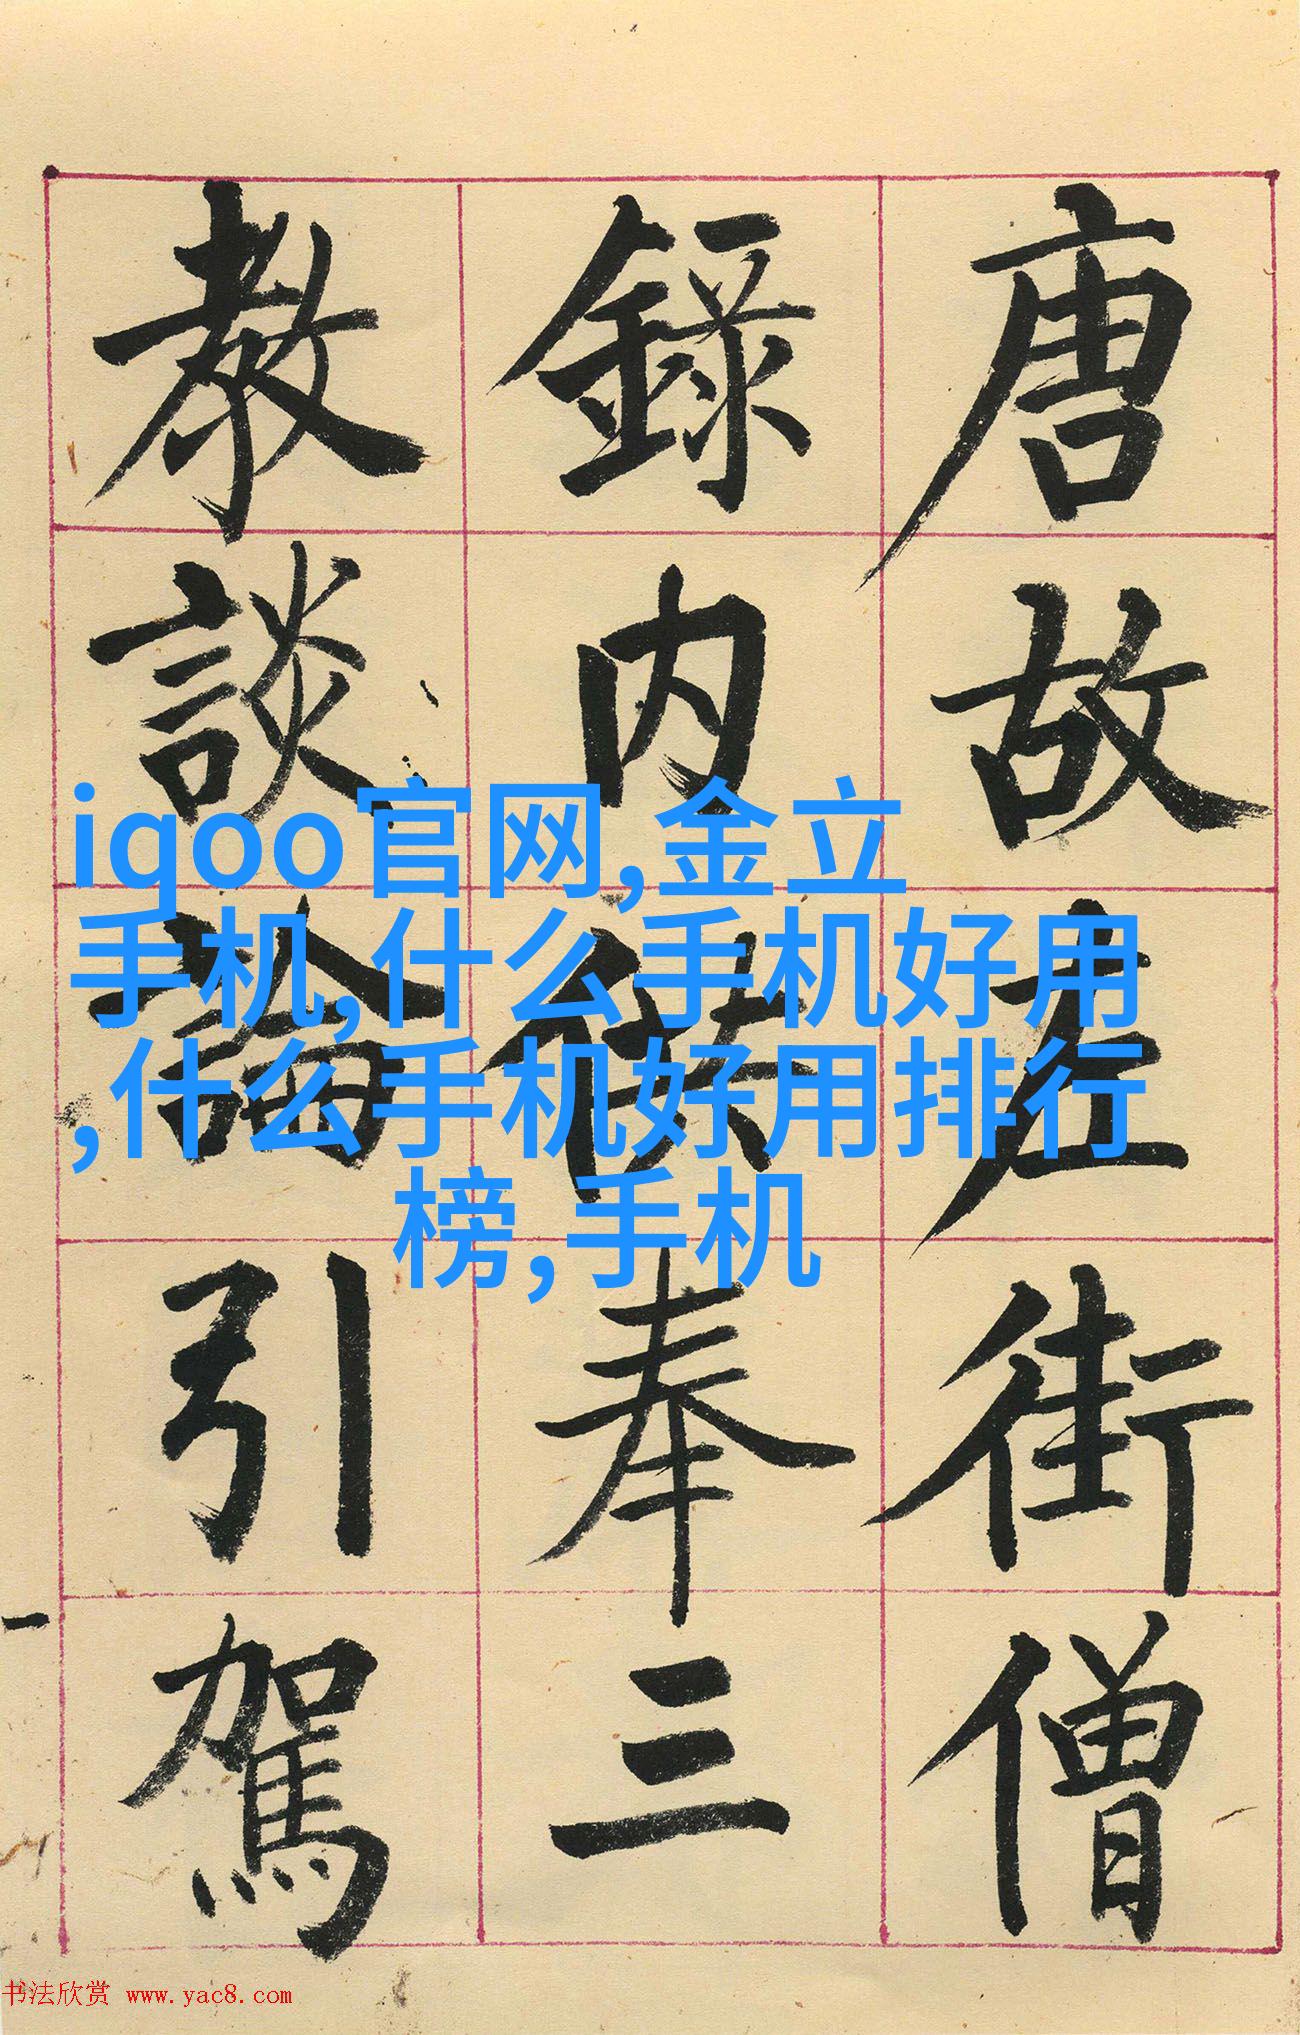 唐故左街僧
錄内供奉三
教談論引駕
iqoo官网,金立
手机,什么手机好用
,什么手机好用排行
榜,手机
书法欣赏 www.yac8.com